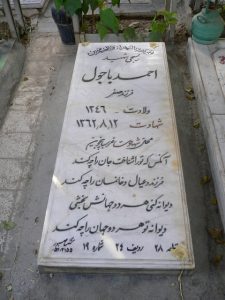 احمد باجول
فرزند صفر
ولادت ۱۳۴۶
شهادت ۱۳۶۲،۸،۱۲
آنکس که تو را شناخت جان را چه کند
فرزند و عیال و خانمان را چه کند
دیوانه کنی هر دو جهانش بخشی
دیوانه تو هر دو جهان را چه کند
قطعه ۲۸ ردیف ۲۴ شماره ۱۹